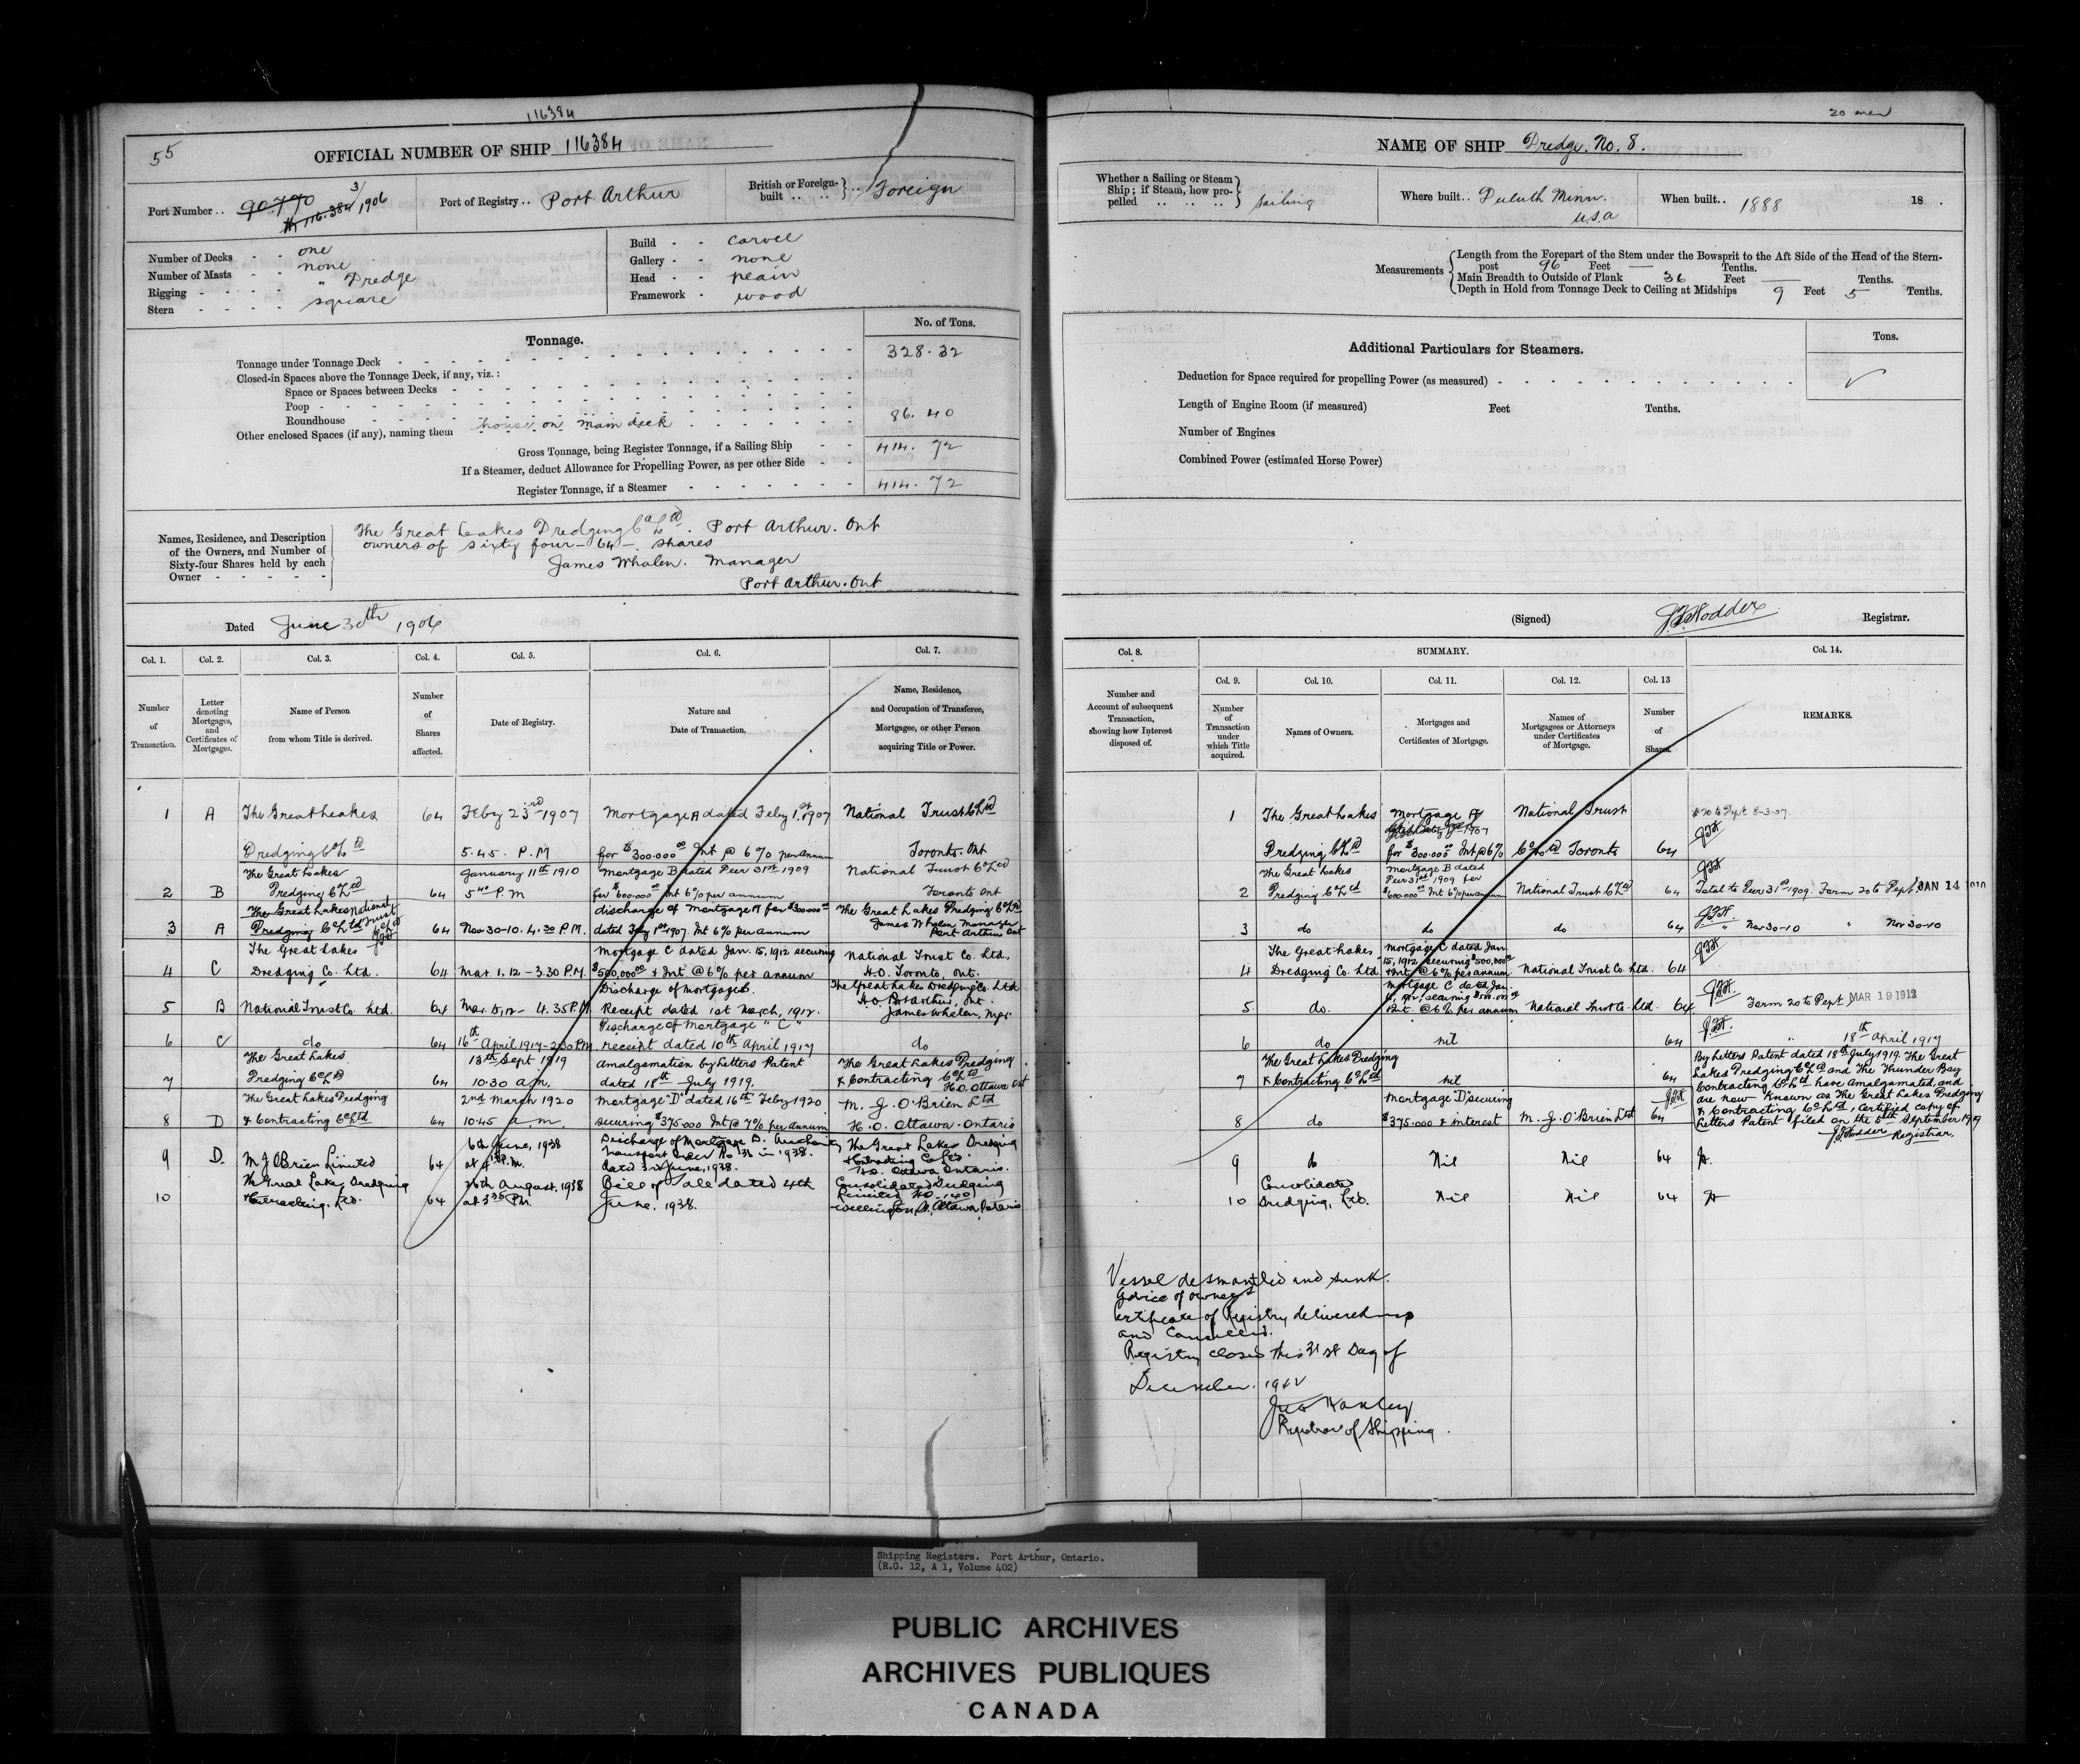 116384
55
OFFICIAL NUMBER OF SHIP 116384
Port Number . . 90.770 3/1906
116.384
Port of Registry . . Port Arthur
British or Foreign-built . . Foreign
Number of Decks - - one
Number of Masts - - none
Rigging - - - - " Dredge
Stern - - - - square
Build - - carvel
Gallery - - none
Head - - plain
Framework - wood
Tonnage.
No. of Tons.
Tonnage under Tonnage Deck 328.32
Closed-in Spaces above the Tonnage Deck, if any, viz. :
Space or Spaces between Decks
Poop
Roundhouse 86.40
Other enclosed Spaces (if any), naming them house on main deck
Gross Tonnage, being Register Tonnage, if a Sailing Ship 414.72
If a Steamer, deduct Allowance for Propelling Power, as per other Side
Register Tonnage, if a Steamer 414.72
Names, Residence, and Description of the Owners, and Number of Sixty-four Shares held by each Owner
The Great Lakes Dredging Co Ltd. Port Arthur. Ont
owners of sixty four - 64 - shares
James Whalen. Manager
Port Arthur. Ont
Dated June 30th 1906
Col. 1. Col. 2. Col. 3. Col. 4. Col. 5. Col. 6. Col. 7.
Number of Transaction.
Letter denoting Mortgages, and Certificates of Mortgages.
Name of Person from whom Title is derived.
Number of Shares affected.
Date of Registry.
Nature and Date of Transaction.
Name, Residence, and Occupation of Transferee, Mortgagee, or other Person acquiring Title or Power.
1 A The Great Lakes 64 Feby 23rd 1907 Mortgage A dated Feby 1st 1907 National Trust Co Ltd
Dredging Co Ltd 5.45. P.M for $300.000 00 Int @ 6% per annum Toronto. Ont
The Great Lakes January 11th 1910 Mortgage B dated Decr 31st 1909 National Trust Co Ltd
2 B Dredging Co Ltd 64 5 40 P.M for $600.000 00 Int 6% per annum Toronto Ont
The Great Lakes National Trust Co Ltd discharge of Mortgage A for $300000 00 The Great Lakes Dredging Co Ltd
3 A Dredging Co Ltd 64 Nov 30-10. 4.30 P.M. dated Feby 1st 1907. Int 6% per annum James Whalen Manager Port Arthur Ont
The Great Lakes Mortgage C dated Jan. 15, 1912 securing National Trust Co. Ltd.
4 C Dredging Co. Ltd. 64 Mar. 1. 12 - 3.30 P.M. $500,000 00 & Int. @ 6% per annum H.O. Toronto, Ont.
Discharge of Mortgage B. The Great Lakes Dredging Co. Ltd
5 B National Trust Co. Ltd. 64 Mar. 5, 12 - 4.35 P.M. Receipt dated 1st March, 1912. H.O. Port Arthur, Ont. James Whalen, Mgr.
Discharge of Mortgage "C"
6 C do 64 16th April 1917 - 2.30 P.M. receipt dated 10th April 1917 do
The Great Lakes 13th Sept 1919 Amalgamation by Letters Patent The Great Lakes Dredging
7 Dredging Co Ltd 64 10.30 a.m. dated 18th July 1919. & Contracting Co Ltd H.O. Ottawa Ont
The Great Lakes Dredging 2nd March 1920 Mortgage "D" dated 16th Feby 1920 M. J. O'Brien Ltd
8 D & Contracting Co Ltd 64 10.45 a.m. securing $375.000 Int @ 7% per annum H.O. Ottawa. Ontario
6th June, 1938 Discharge of Mortgage D. The Great Lakes Dredging
9 D. M J OBrien Limited 64 P.M. Transport under No in 1938. dated June, 1938. & Contracting Co Ltd. H.O. Ottawa Ontario.
The Great Lakes Dredging 26th August, 1938 Bill of Sale dated 4th Consolidated Dredging
10 Contracting. Ltd. 64 at 3 30 P.M. June, 1938. Limited H.O. 140 Wellington St, Ottawa Ontario
20 men
NAME OF SHIP Dredge. No. 8.
Whether a Sailing or Steam Ship; if Steam, how propelled sailing
Where built . . Duluth Minn. U.S.A
When built . . 1888 18 .
Measurements
Length from the Forepart of the Stem under the Bowsprit to the Aft Side of the Head of the Stern-
post 96 Feet — Tenths.
Main Breadth to Outside of Plank 36 Feet — Tenths.
Depth in Hold from Tonnage Deck to Ceiling at Midships 9 Feet 5 Tenths.
Additional Particulars for Steamers.
Tons.
Deduction for Space required for propelling Power (as measured)
Length of Engine Room (if measured) Feet Tenths.
Number of Engines
Combined Power (estimated Horse Power)
(Signed) J.F. Hodder Registrar.
Col. 8. SUMMARY. Col. 14.
Col. 9. Col. 10. Col. 11. Col. 12. Col. 13
Number and Account of subsequent Transaction, showing how Interest disposed of.
Number of Transaction under which Title acquired.
Names of Owners.
Mortgages and Certificates of Mortgage.
Names of Mortgagees or Attorneys under Certificates of Mortgage.
Number of Shares.
REMARKS.
1 The Great Lakes Mortgage A National Trust 8-3-07
Dredging Co Ltd 1907 for $300.000 Int @ 6% Co Ltd Toronto 64
The Great Lakes Mortgage B dated
2 Dredging Co Ltd Decr 31st 1909 for $600.000 00 Int 6% per annum National Trust Co Ltd 64 Total to Decr 31st 1909. Form 20 to Dept JAN 14 1910
3 do do do 64 " Nov 30-10 " Nov 30-10
The Great Lakes Mortgage C dated Jan.
4 Dredging Co. Ltd. 15, 1912 securing $500,000 00 & Int. @ 6% per annum National Trust Co. Ltd. 64
Mortgage C dated Jan.
5 do. 15, 1912, securing $500.000 00 Int. @ 6% per annum National Trust Co. Ltd. 64 Form 20 to Dept MAR 19 1912
6 do nil 64 " 18th April 1917
The Great Lakes Dredging
7 & Contracting Co Ltd nil 64
By Letters Patent dated 18th July 1919. The Great
Lakes Dredging Co Ltd and The Thunder Bay
Contracting Co Ltd have amalgamated and
are now known as The Great Lakes Dredging
& Contracting Co Ltd, Certified copy of
Letters Patent filed on the September 1919
J F Hodder Registrar.
Mortgage "D" securing
8 do $375.000 & interest M. J. O'Brien Ltd 64
9 do Nil Nil 64
Consolidated
10 Dredging, Ltd. Nil Nil 64
Vessel desmantled and sunk.
Advice of owners
Certificate of Registry delivered up
and Cancelled.
Registry closed this 31st Day of
December.
Registrar of Shipping.
Shipping Registers. Port Arthur, Ontario.
(R.G. 12, A 1, Volume 402)
PUBLIC ARCHIVES
ARCHIVES PUBLIQUES
CANADA